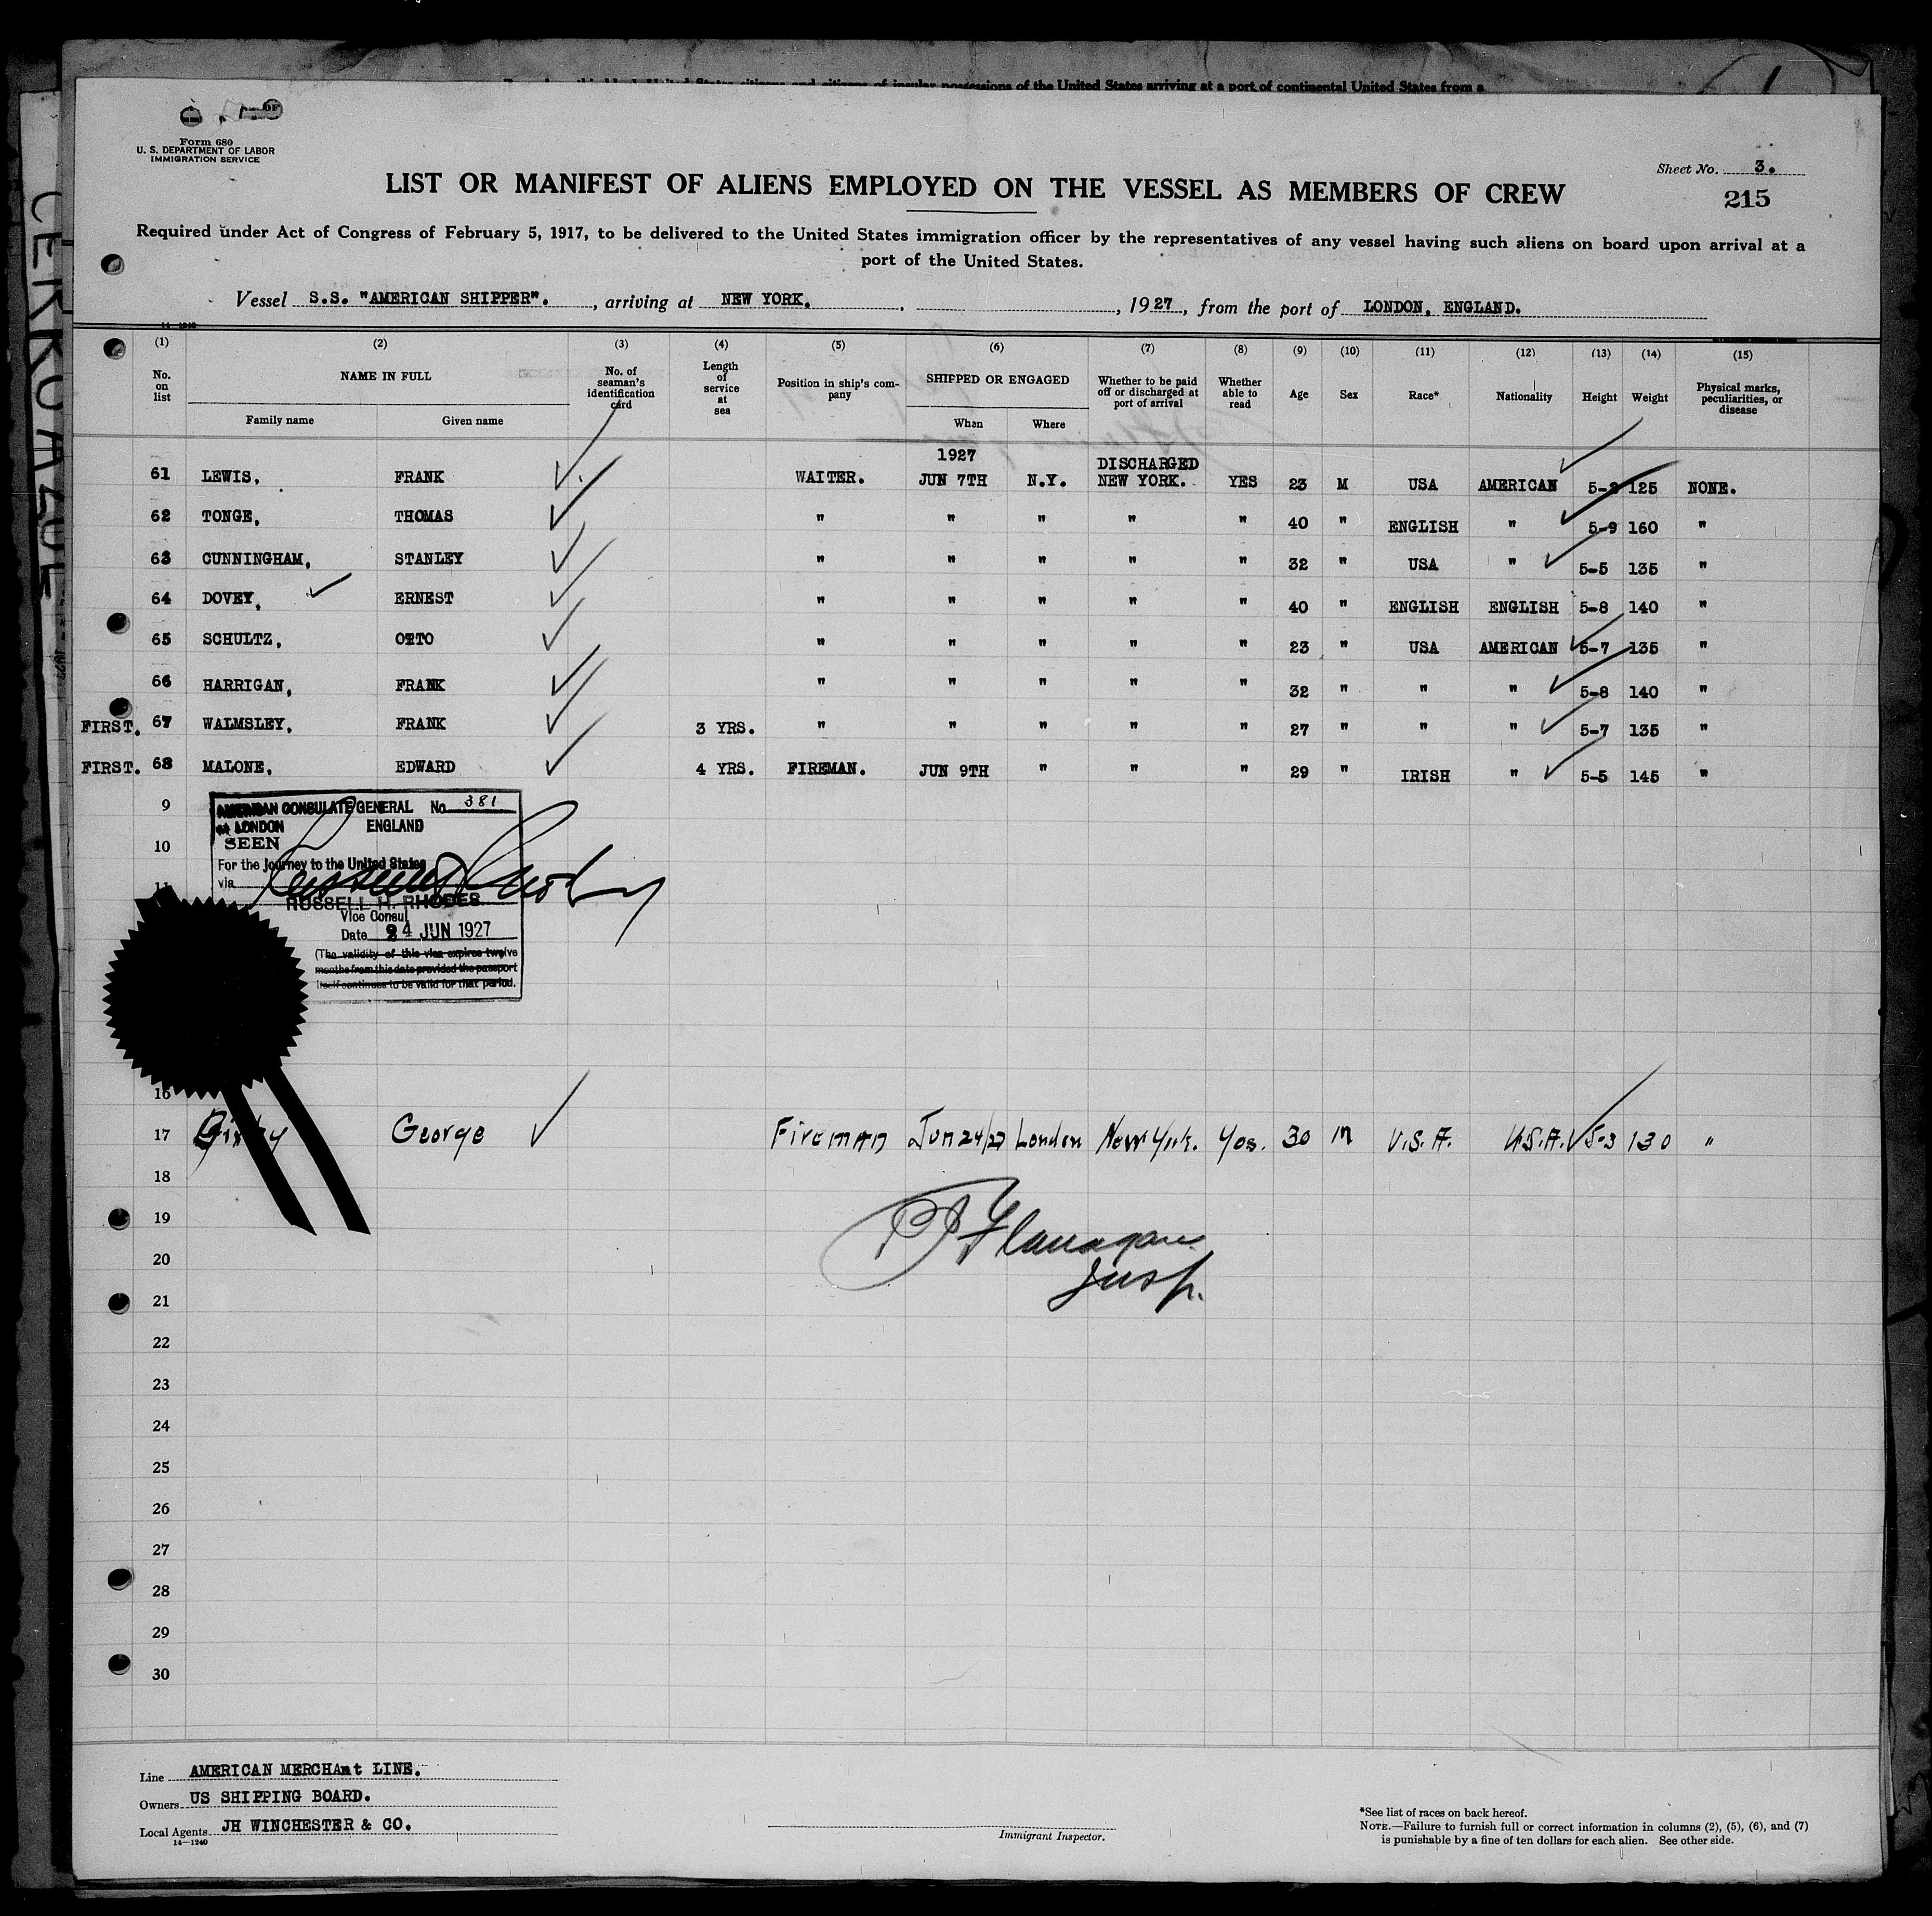 Form 680
U. S. DEPARTMENT OF LABOR
IMMIGRATION SERVICE
Sheet No. 3.
215
LIST OR MANIFEST OF ALIENS EMPLOYED ON THE VESSEL AS MEMBERS OF CREW
Required under Act of Congress of February 5, 1917, to be delivered to the United States immigration officer by the representatives of any vessel having such aliens on board upon arrival at a
port of the United States.
Vessel S.S. "AMERICAN SHIPPER"., arriving at NEW YORK., 1927, from the port of LONDON, ENGLAND.
(1) (2) (3) (4) (5) (6) (7) (8) (9) (10) (11) (12) (13) (14) (15)
No. on list NAME IN FULL Family name Given name No. of seaman's identification card Length of service at sea Position in ship's company SHIPPED OR ENGAGED When Where Whether to be paid off or discharged at port of arrival Whether able to read Age Sex Race* Nationality Height Weight Physical marks, peculiarities, or disease
61 LEWIS, FRANK WAITER. 1927 JUN 7TH N.Y. DISCHARGED NEW YORK. YES 23 M USA AMERICAN 125 NONE.
62 TONGE, THOMAS " " " " " 40 " ENGLISH " 5-9 160 "
63 CUNNINGHAM, STANLEY " " " " " 32 " USA " 5-5 135 "
64 DOVEY, ERNEST " " " " " 40 " ENGLISH ENGLISH 5-8 140 "
65 SCHULTZ, OTTO " " " " " 23 " USA AMERICAN 5-7 135 "
66 HARRIGAN, FRANK " " " " " 32 " " " 5-8 140 "
FIRST. 67 WALMSLEY, FRANK 3 YRS. " " " " " 27 " " " 5-7 135 "
FIRST. 68 MALONE, EDWARD 4 YRS. FIREMAN. JUN 9TH " " " 29 " IRISH " 5-5 145 "
9
AMERICAN CONSULATE GENERAL No. 381
LONDON ENGLAND
10
SEEN
For the Journey to the United States
via
11
RUSSELL H. RHODES
Vice Consul
Date 24 JUN 1927
(The validity of this visa expires twelve
months from this date provided the passport
itself continues to be valid for that period.
16
17 George Fireman Jun 24/27 London New York. Yes. 30 M U.S.A. U.S.A. 5-3 130 "
18
19
Flanagan
20
Insp.
21
22
23
24
25
26
27
28
29
30
Line AMERICAN MERCHAnt LINE.
Owners US SHIPPING BOARD.
Local Agents JH WINCHESTER & CO.
14—1240
Immigrant Inspector.
*See list of races on back hereof.
NOTE.—Failure to furnish full or correct information in columns (2), (5), (6), and (7)
is punishable by a fine of ten dollars for each alien. See other side.